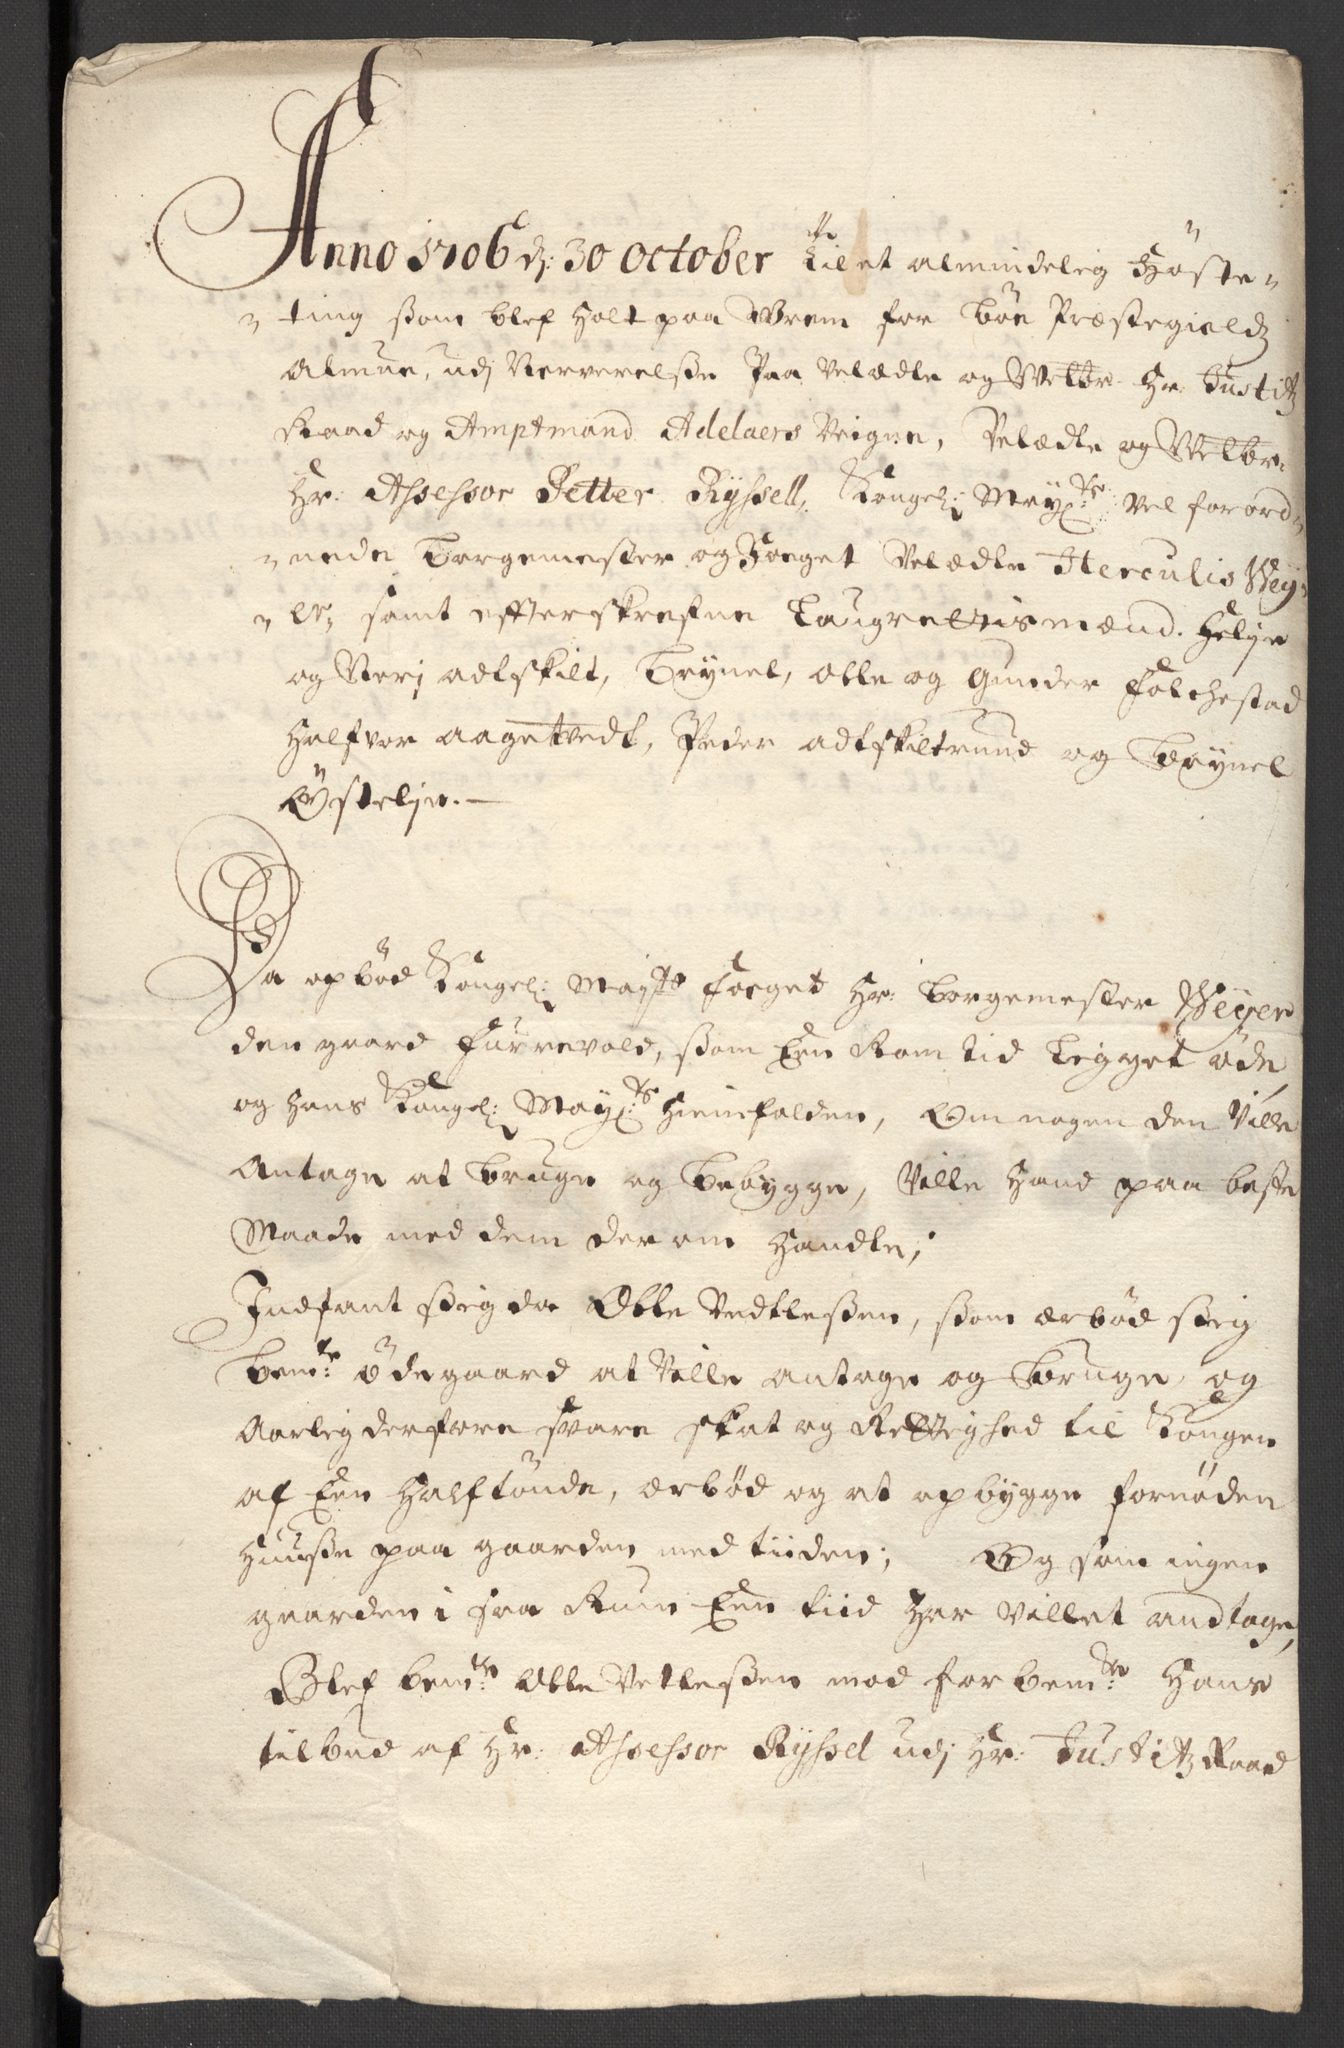 Anno 1706 dj: 30 October Til et almindelig Høste-
ting ssom blef Holt paa Wrem for Bøe Præstegieldz
Almue, udj Nerverelsse Paa Velædle og Welbr. Hr. Justitz
Raad og Amptmand Adelaers Veigne, Velædle og Welbr.
Hr: Assessor Petter Ryssell, Kongel: May:ts vel forord-
nede Borgemester og Foeget Velædle Herculis Wey-
er, samt effterskrefne Laugrettismænd. Helje
og Verj adtskilt, Brynel, Olle og Gunder Folchestad
Halfvor Aagetvedt, Peder adtskiltruud og Brynel
Østelje.
Da opbød Kongel: Mayts Foeget Hr: Borgemester Weyer
den gaard Furrevold, ssom Een Rom tid Ligget øde
og Hans Kongel: May:ts Hiemfalden, Om nogen den Ville
Antage at bruge og bebygge, Ville Hand paa beste
Maade med dem derom Handle;
Indfant ssig da Olle Vedtlessen, ssom erbød ssig
bem:te ødegaard at Ville antage og bruge, og
Aarlig derfore svare skat og Rettighed til Kongen
af Een Halftønde, erbød og at opbygge fornøden
Huusse paa gaarden med tiiden; Og som ingen
gaarden i saa Rum Een tiid Har villet andtage,
Blef bem:te Olle Vetlessen mod forbem:te Hans
tilbud af Hr: Assessor Ryssel udj Hr: Justitz Raad